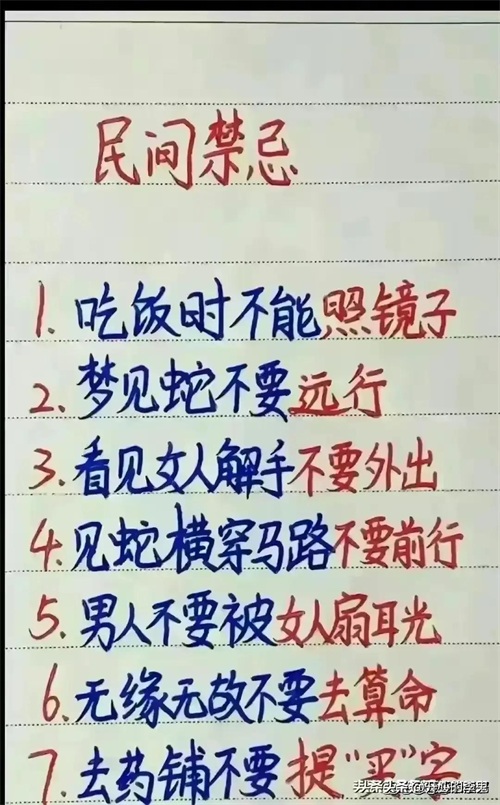 民间禁忌
1. 吃饭时不能照镜子
2. 梦见蛇不要远行
3. 看见女人解手不要外出
4. 见蛇横穿马路不要前行
5. 男人不要被女人扇耳光
6. 无缘无故不要去算命
7. 去药铺不要提“买”字
头条